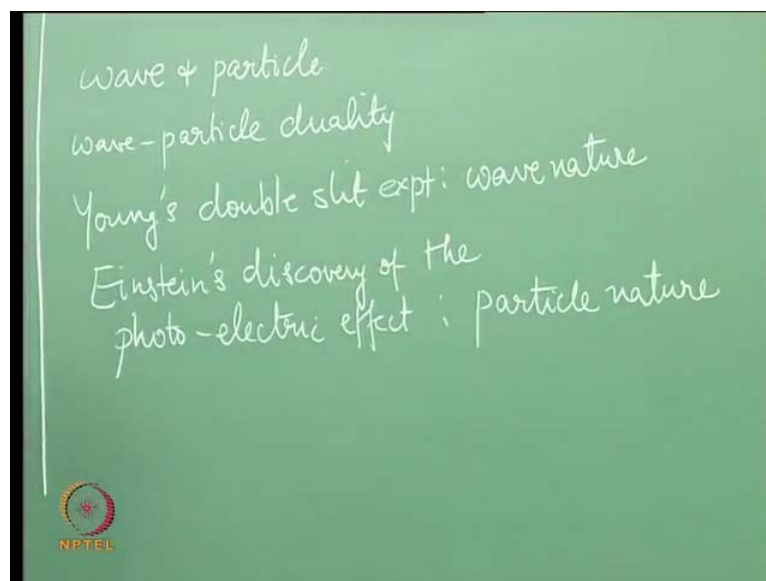 wave & particle
wave-particle duality
Young's double slit expt: wave nature
Einstein's discovery of the
photo-electric effect : particle nature
NPTEL